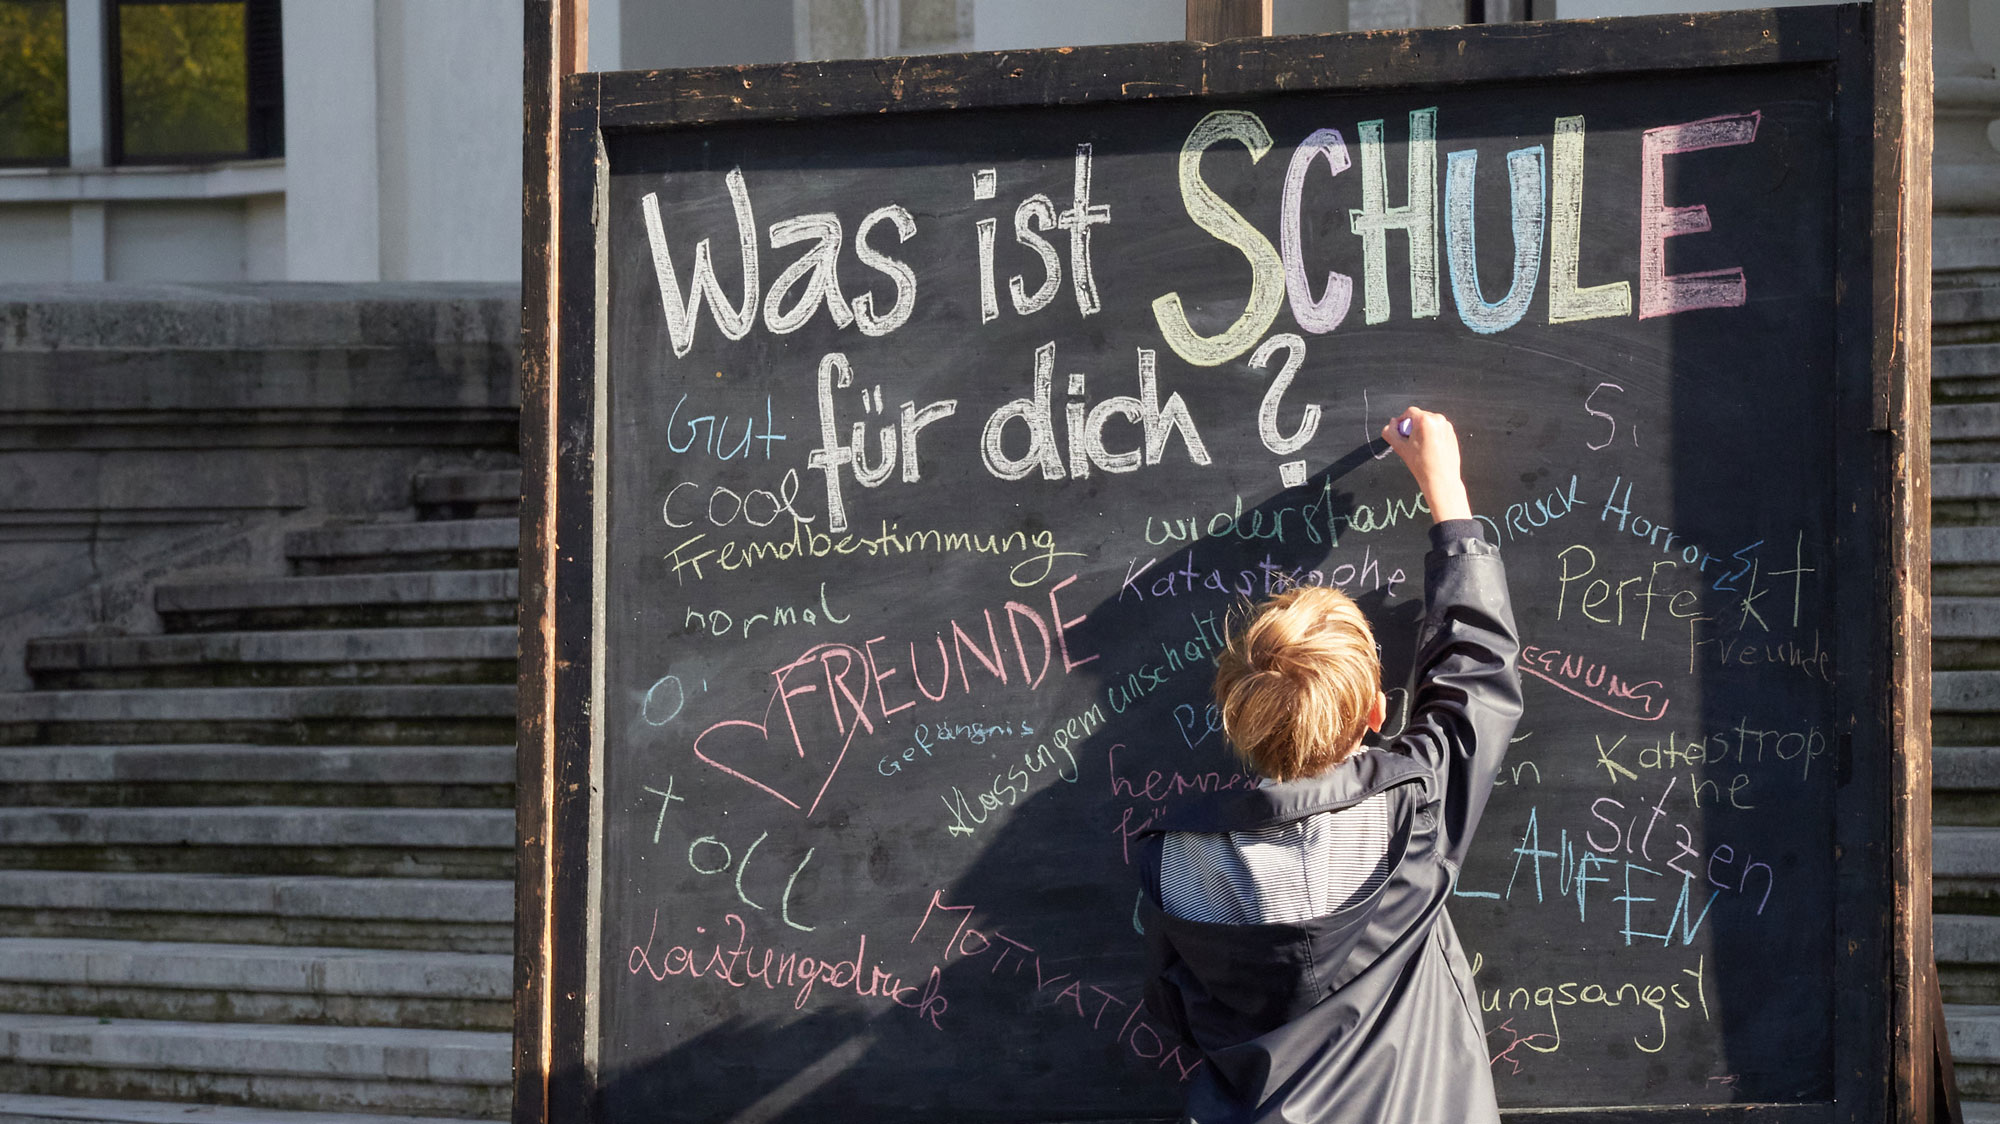 Was ist SCHULE
für dich?
Gut
cool
Fremdbestimmung
normal
FREUNDE
Gefängnis
Klassengemeinschaft
widerstand
Katastrophe
DRUCK
Horror
Perfekt
Freunde
Katastrophe
sitzen
LAUFEN
Toll
Leistungsdruck
MOTIVATION